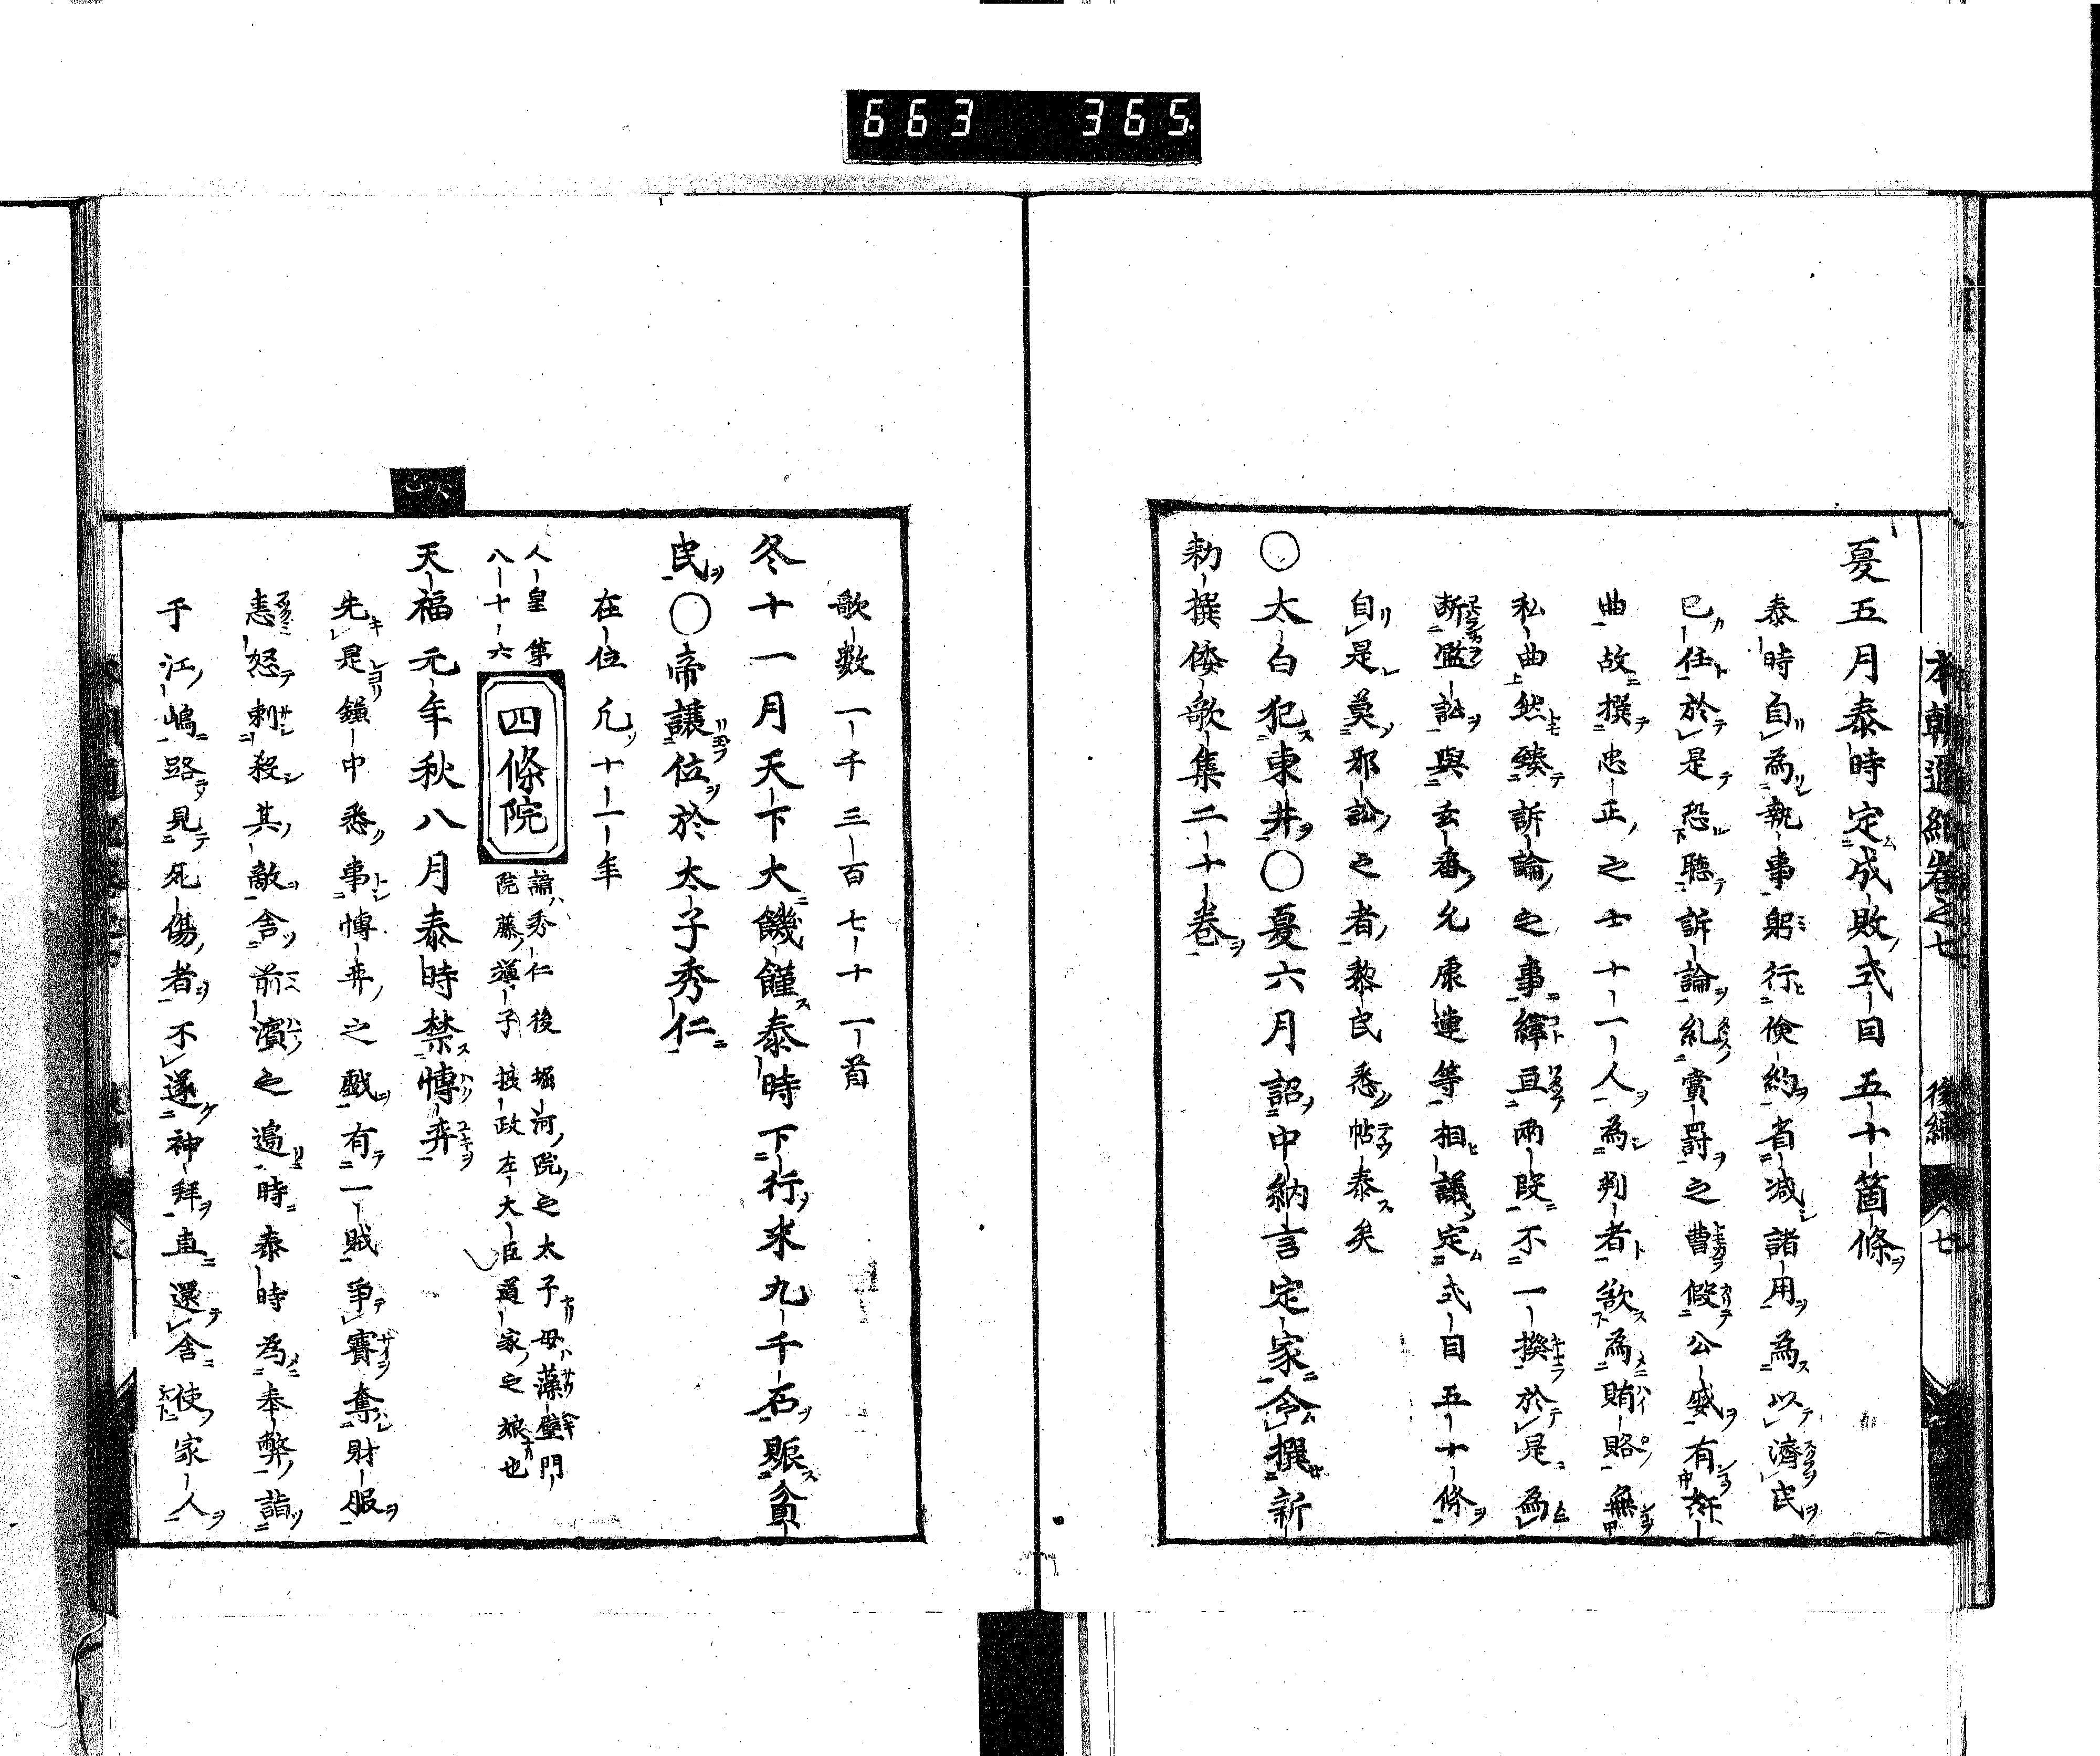 663 365
本朝通紀卷之七 後編 七
夏五月泰時定成敗式目五十箇條
泰時自為執事躬行倹約省减諸用為以濟民
已任於是恐聴訴論糺賞罰之曹假公威有奸
曲故撰忠正之士十一人為判者欲為賄賂無
私曲然臻訴論之事繹亘兩段不一揆於是為
断濫訟與玄番允康連等相議定式目五十條
自是奠邪訟之者黎民悉帖泰矣
〇太白犯東井〇夏六月詔中納言定家令撰新
勅撰倭歌集二十卷
歌数一千三百七十一首
冬十一月天下大饑饉泰時下行米九千石賑貧
民〇帝譲位於太子秀仁
在位凡十一年
人皇第
八十六
四條院
諱秀仁後堀河院之太子母藻璧門
院藤䔻子摂政左大臣道家之娘也
癸巳
天福元年秋八月泰時禁博弈
先是鎌中悉事博弈之戯有一賊爭賽奪財服
恚怒刺殺其敵舎前濱之邉時泰時為奉弊詣
于江嶋路見死傷者不遂神拜直還舎使家人